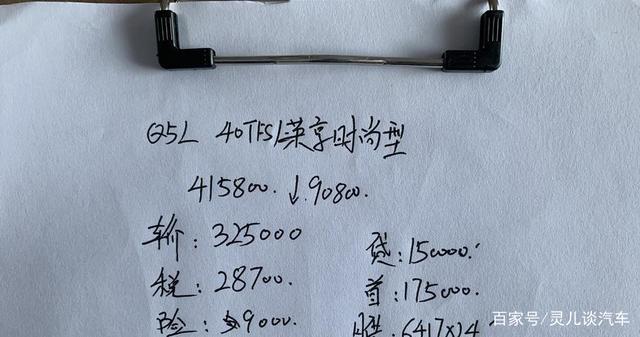 Q5L 40TFSI荣享时尚型
415800. ↓90800.
车价:325000
贷:150000.
税:28700.
首:175000.
险:9000.
6417×24
百家号/灵儿谈汽车